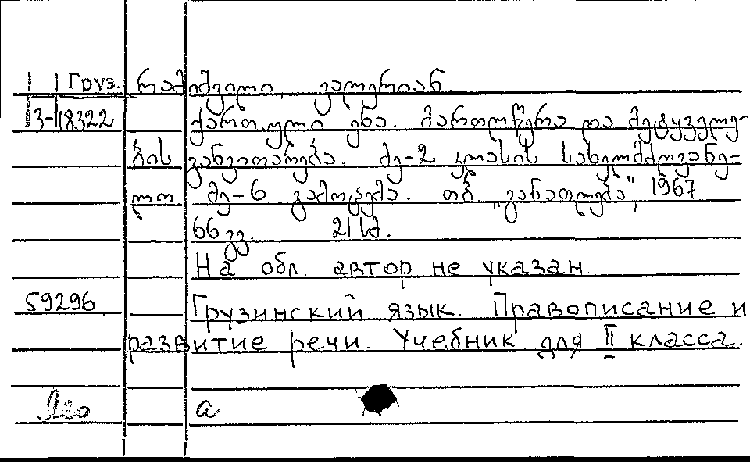 Груз. რამიშვილი, ვალერიან
3-18322 ქართული ენა. მართლწერა და მეტყველე-
ბის განვითარება. მე-2 კლასის სახელმძღვანე-
ლო. მე-6 გამოცემა. თბ. "განათლება", 1967
66 გვ. 21 სმ.
На обл. автор не указан
59296 Грузинский язык. Правописание и
развитие речи. Учебник для II класса.
а